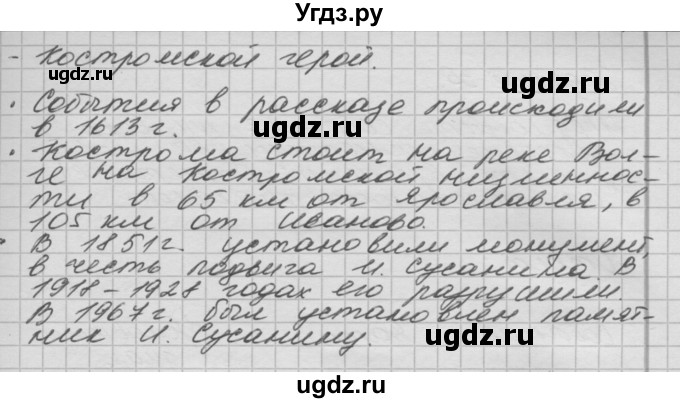 Угдз.ру
- Костромской герой.
ugdz.ru
ugdz.ru
• События в рассказе происходили
в 1613 г.
ugdz.ru
ugdz.ru
• Кострома стоит на реке Вол-
ге на Костромской низменнос-
ти в 65 км от Ярославля, в
ugdz.ru
105 км от Иваново.
• В 1851г. установили монумент,
в честь подвига И. Сусанина. В
ugdz.ru
ugdz.ru
1918-1928 годах его разрушили.
В 1967 г. был установлен памят-
ugdz.ru
ник И. Сусанину.
ugdz.ru
ugdz.ru